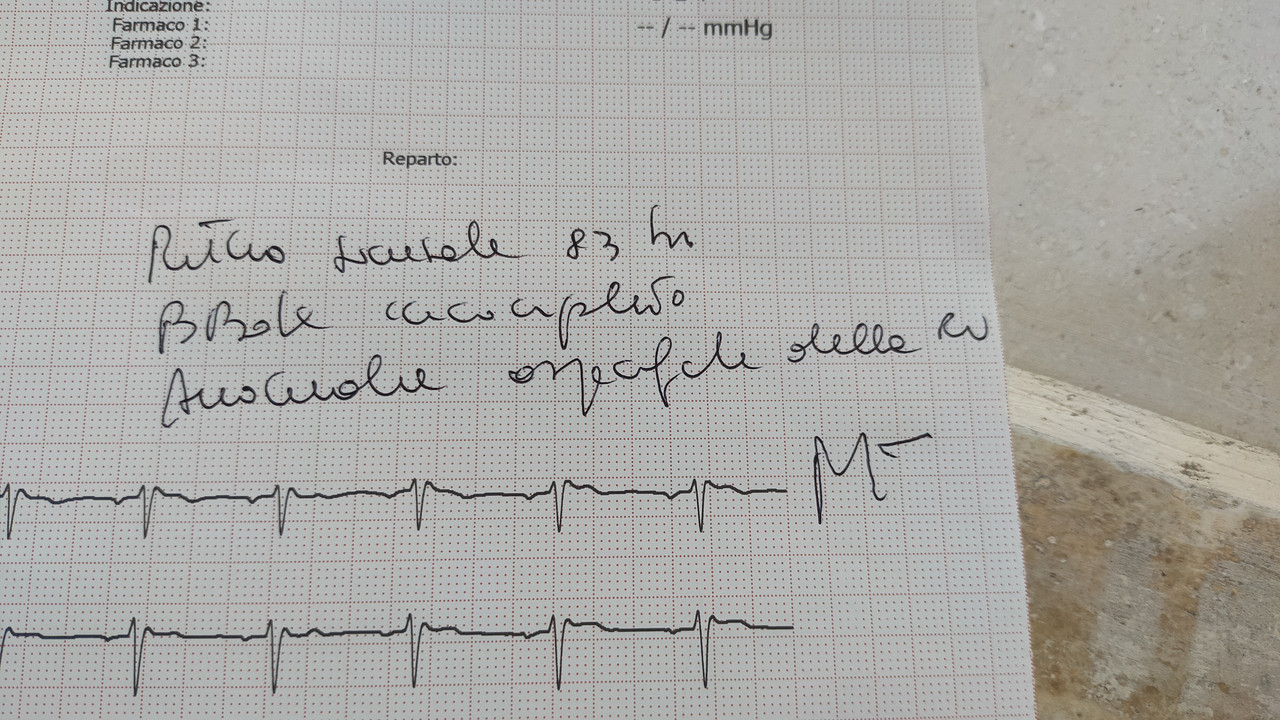 Indicazione:
Farmaco 1:
Farmaco 2:
Farmaco 3:
-- / -- mmHg
Reparto:
Ritmo sinusale 83
incompleto
Anomalie aspecifiche della RV